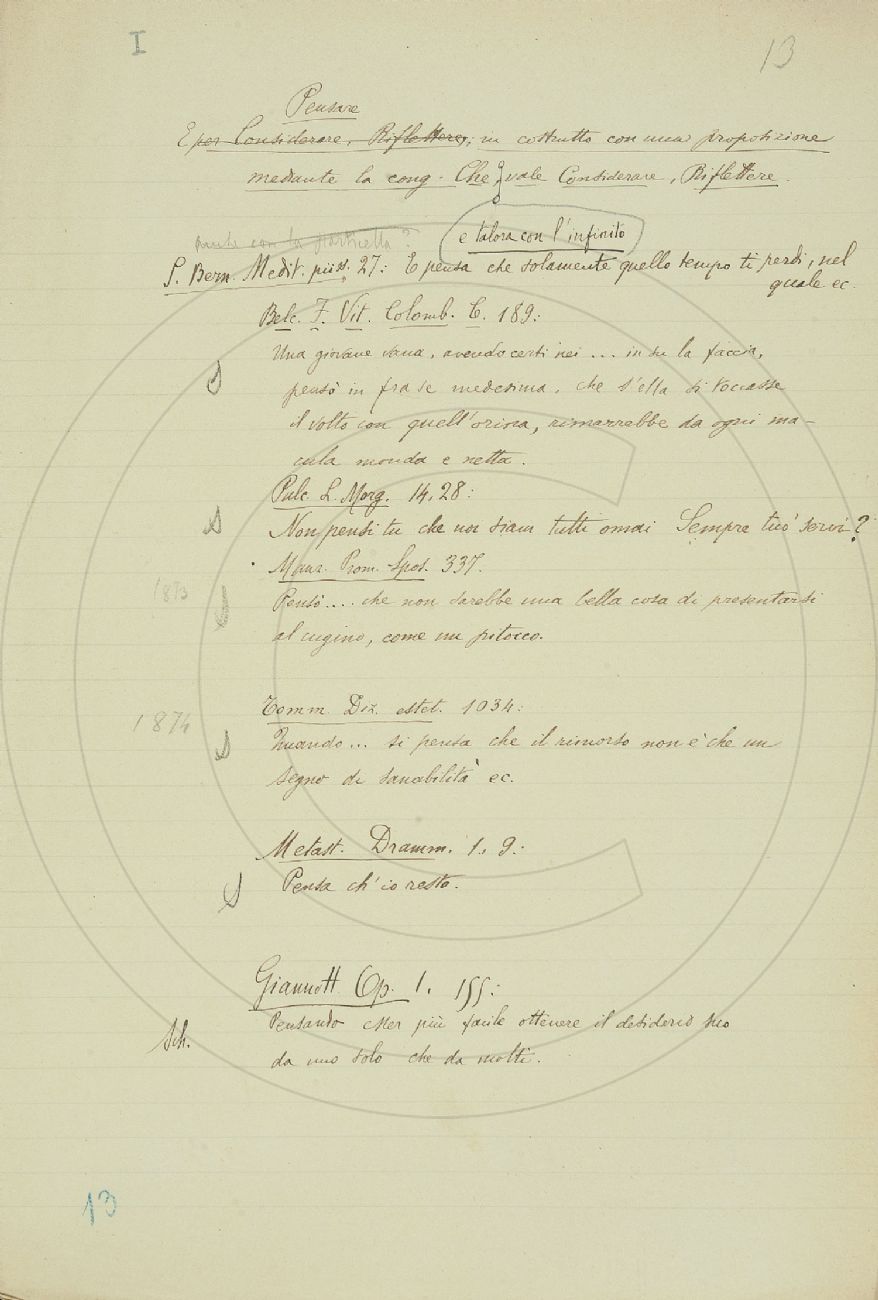 I
13
Pensare
E per Considerare, Riflettere, in costrutto con una proposizione
mediante la cong. Che, vale Considerare, Riflettere.
e talora con l'infinito
con la particella?
S. Bern. Medit. piiss. 27: E pensa che solamente quello tempo ti perdi, nel
quale ec.
Belc. F. Vit. Colomb. C. 189:
Una giovane vana, avendo certi nei ... in su la faccia,
pensò in fra se medesima, che s'ella si toccasse
il volto con quell'orina, rimarrebbe da ogni ma-
cula monda e netta.
Pulc. L. Morg. 14, 28:
Non pensi tu che noi siam tutti omai Sempre tuo' servi?
Manz. Prom. Spos. 337.
1873
Pensò .... che non sarebbe una bella cosa di presentarsi
al cugino, come un pitocco.
Tomm. Diz. estet. 1034:
1874
Quando ... si pensa che il rimorso non è che un
segno di sanabilità ec.
Metast. Dramm. 1, 9:
Pensa ch'io resto.
Giannott. Op. 1. 155:
Pensando esser più facile ottenere il desiderio suo
Sch.
da uno solo che da molti.
13